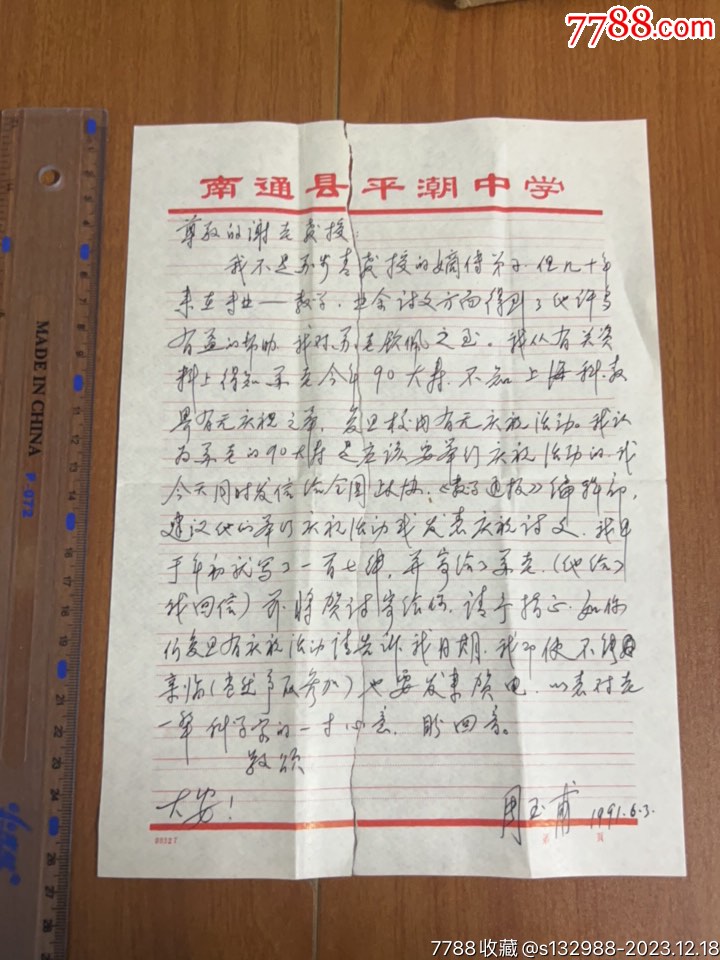 7788.com
南通县平潮中学
尊敬的谢老教授：
我不是苏步青教授的嫡传弟子，但几十年
来在专业——数学，业余诗文方面得到了他许多
有益的帮助，我对苏老钦佩之至。我从有关资
料上得知苏老今年90大寿，不知上海科教
界有无庆祝之举，复旦校内有无庆祝活动。我认
为苏老的90大寿是应该要举行庆祝活动的，我
今天同时发信给全国政协，《数学通报》编辑部，
建议他们举行庆祝活动或发表庆祝诗文，我早
于年初就写了一首七律，并寄给了苏老，（他给了
我回信）亦将贺诗寄给你，请予指正，如你
们复旦有庆祝活动请告诉我日期，我即使不能
亲临（争取参加）也要发来贺电，以表对老
一辈科学家的一寸心意，盼回音。
敬颂
大安！
周玉甫 1991.6.3.
第 页
MADE IN CHINA P-072
7788收藏@s132988-2023.12.18